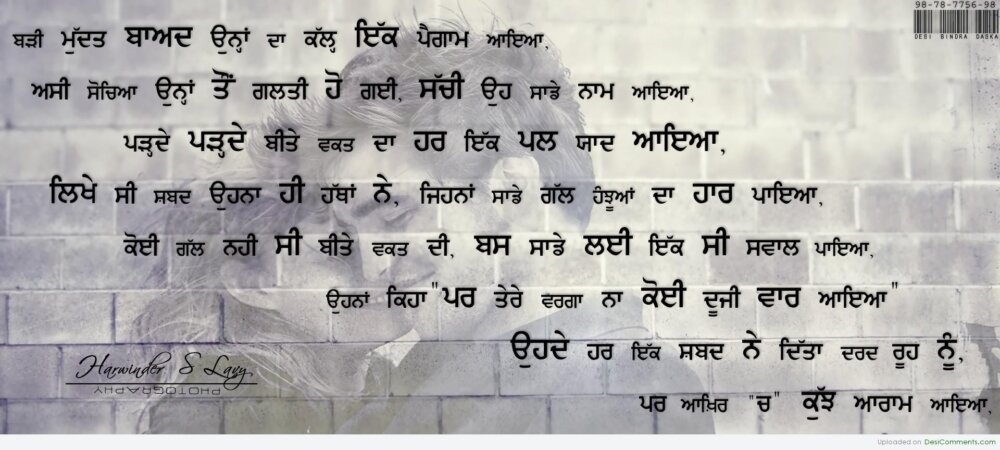 98-78-7756-98
DESI BINDRA DASKA
ਬੜੀ ਮੁੱਦਤ ਬਾਅਦ ਉਨ੍ਹਾਂ ਦਾ ਕੱਲ੍ਹ ਇੱਕ ਪੈਗਾਮ ਆਇਆ,
ਅਸੀ ਸੋਚਿਆ ਉਨ੍ਹਾਂ ਤੋਂ ਗਲਤੀ ਹੋ ਗਈ, ਸੱਚੀ ਉਹ ਸਾਡੇ ਨਾਮ ਆਇਆ,
ਪੜ੍ਹਦੇ ਪੜ੍ਹਦੇ ਬੀਤੇ ਵਕਤ ਦਾ ਹਰ ਇੱਕ ਪਲ ਯਾਦ ਆਇਆ,
ਲਿਖੇ ਸੀ ਸ਼ਬਦ ਉਹਨਾ ਹੀ ਹੱਥਾਂ ਨੇ, ਜਿਹਨਾਂ ਸਾਡੇ ਗੱਲ ਹੰਝੂਆਂ ਦਾ ਹਾਰ ਪਾਇਆ,
ਕੋਈ ਗੱਲ ਨਹੀ ਸੀ ਬੀਤੇ ਵਕਤ ਦੀ, ਬਸ ਸਾਡੇ ਲਈ ਇੱਕ ਸੀ ਸਵਾਲ ਪਾਇਆ,
ਉਹਨਾਂ ਕਿਹਾ "ਪਰ ਤੇਰੇ ਵਰਗਾ ਨਾ ਕੋਈ ਦੂਜੀ ਵਾਰ ਆਇਆ"
ਉਹਦੇ ਹਰ ਇੱਕ ਸ਼ਬਦ ਨੇ ਦਿੱਤਾ ਦਰਦ ਰੂਹ ਨੂੰ,
ਪਰ ਆਖ਼ਿਰ "ਚ" ਕੁੱਝ ਆਰਾਮ ਆਇਆ,
Harwinder S Lavy
PHOTOGRAPHY
Uploaded on DesiComments.com